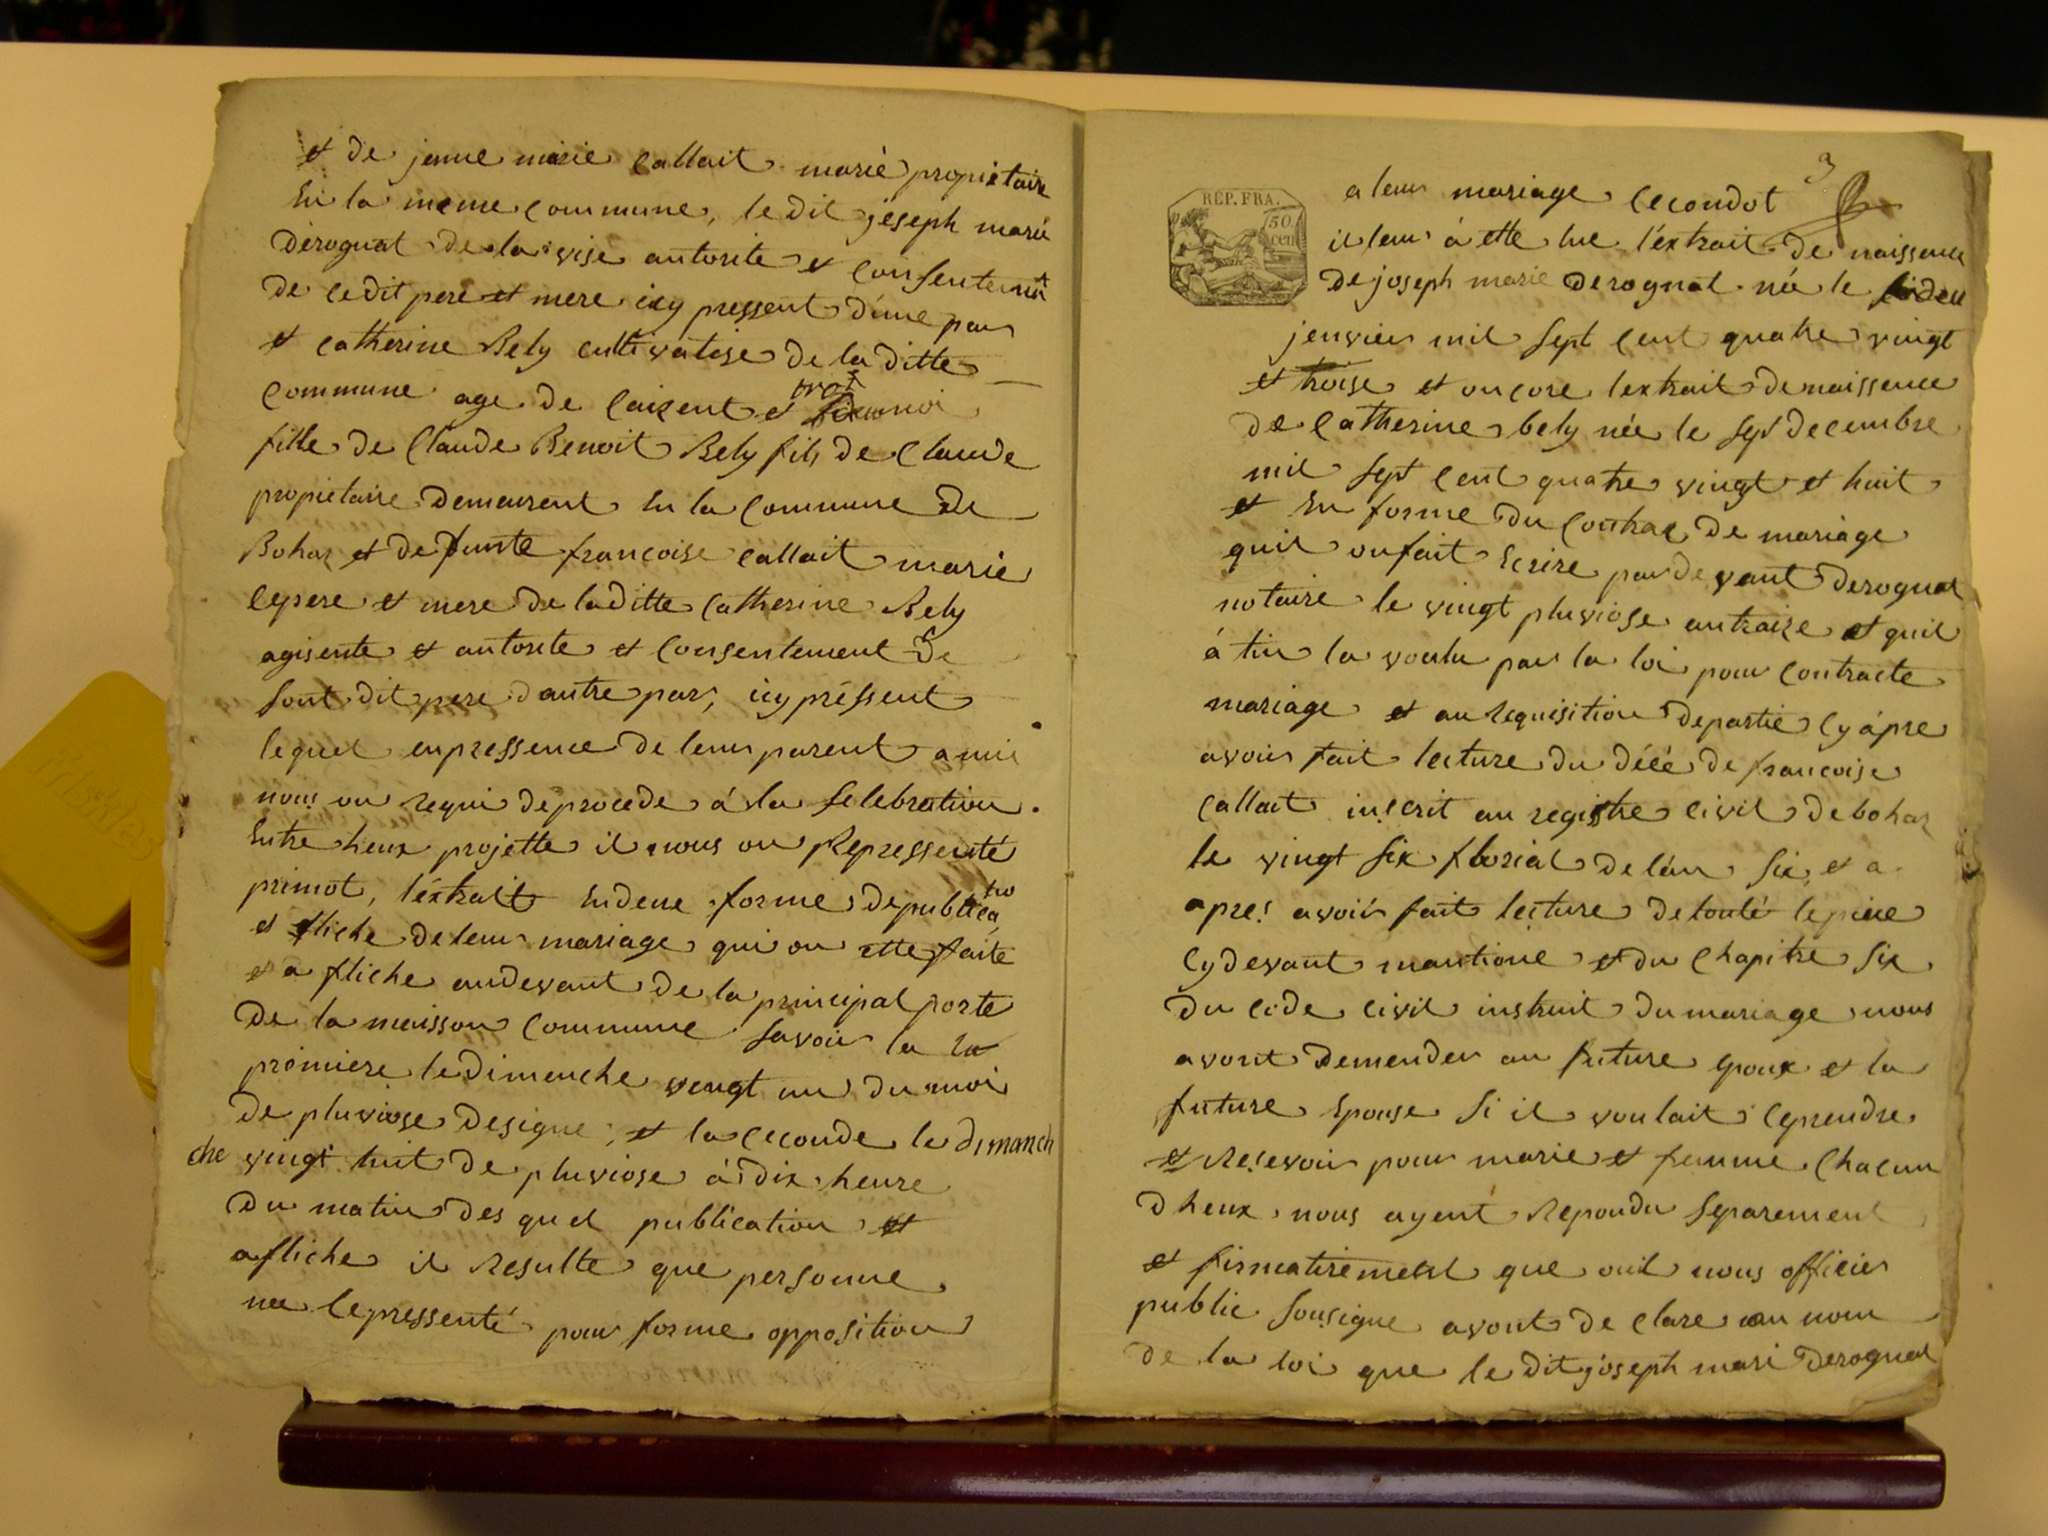 et de jenne marie callait marié propietaire
En la meme commune, le dit joseph marie
derognat de la vise autorite et consentement
de ce dit pere et mere icy pressent d'une par
et catherine Bely cultivatise de la ditte
commune age de caizent et troi moi
fille de Claude Benoit Bely fils de Claude
propietaire demeurent En la commune de
Bohaz et de funte francoise callait marié
ce pere et mere de la ditte catherine Bely
agisente et autorite et consentement de
sont dit pere d'autre par, icy préssent
lequel enpressence de leur parent amie
nous on requi de procede á la selebration
Entre heux projette il nous on Repressenté
primot, l'éxtrait Endeue forme de publicatio
et afliche de leur mariage qui on ette faite
et a fliche audevant de la principal porte
de la maisson commune savoir la
promiere le dimenche vengt un du moi
de pluviose designe, et la ceconde le dimanch
che vingt huit de pluviose á dix heure
du matin des quel publication et
afliche il resulte que personne
ne ce pressenté pour forme opposition
3
REP. FRA.
50
cen
a leur mariage cecondot
il leur á ette lue l'éxtrait de naissence
de joseph marie derognat née le
jenvier mil sept cent quatre vingt
et troise et oncore lextrait de naissence
de catherine bely née le sept decembre
mil sept cent quatre vingt et huit
et En forme du contrac de mariage
quil on fait Ecrire par devant derognat
notaire le vingt pluviose antraize et quil
á tin la voulu par la loi pour contracte
mariage et au requisition de partie cy ápre
avoir fait lecture du décé de francoise
callait inscrit au registre civil de bohaz
le vingt six florial de l'án six, et a
apres avoir fait lecture de touté le piece
cy devant mantione et du chapitre six
du code civil instruit du mariage nous
avont demender au future epoux et la
future Epouse si il voulait ce prendre
et recevoir pour marie et femme chacun
d heux nous ayent repondu separement
et firmatirement que oui nous officier
public sousigne avont de clare au nom
de la loi que le dit joseph mari derognat